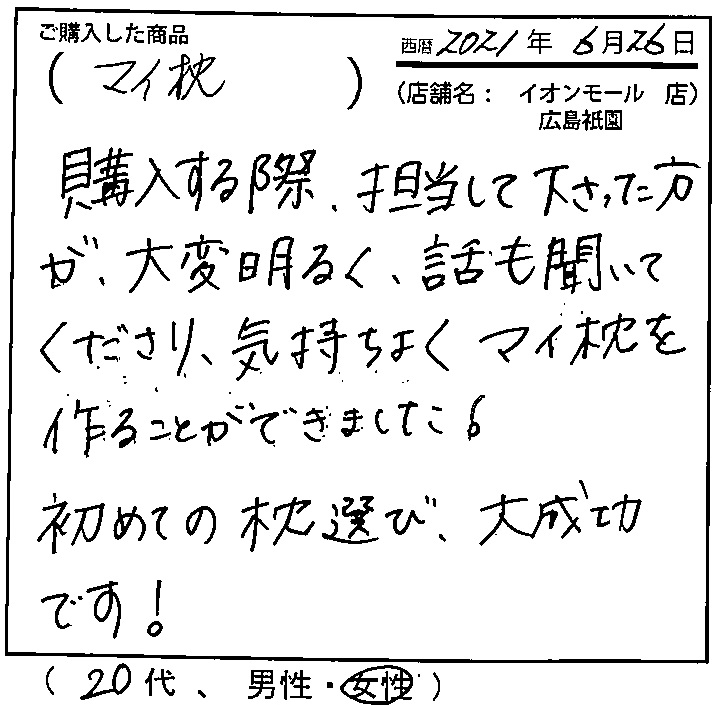 ご購入した商品
西暦 2021年 6月26日
( マイ枕 )
(店舗名： イオンモール 店)
広島祇園
購入する際、担当して下さった方
が、大変明るく、話も聞いて
くださり、気持ちよくマイ枕を
作ることができました。
初めての枕選び、大成功
です！
( 20代、 男性・女性 )